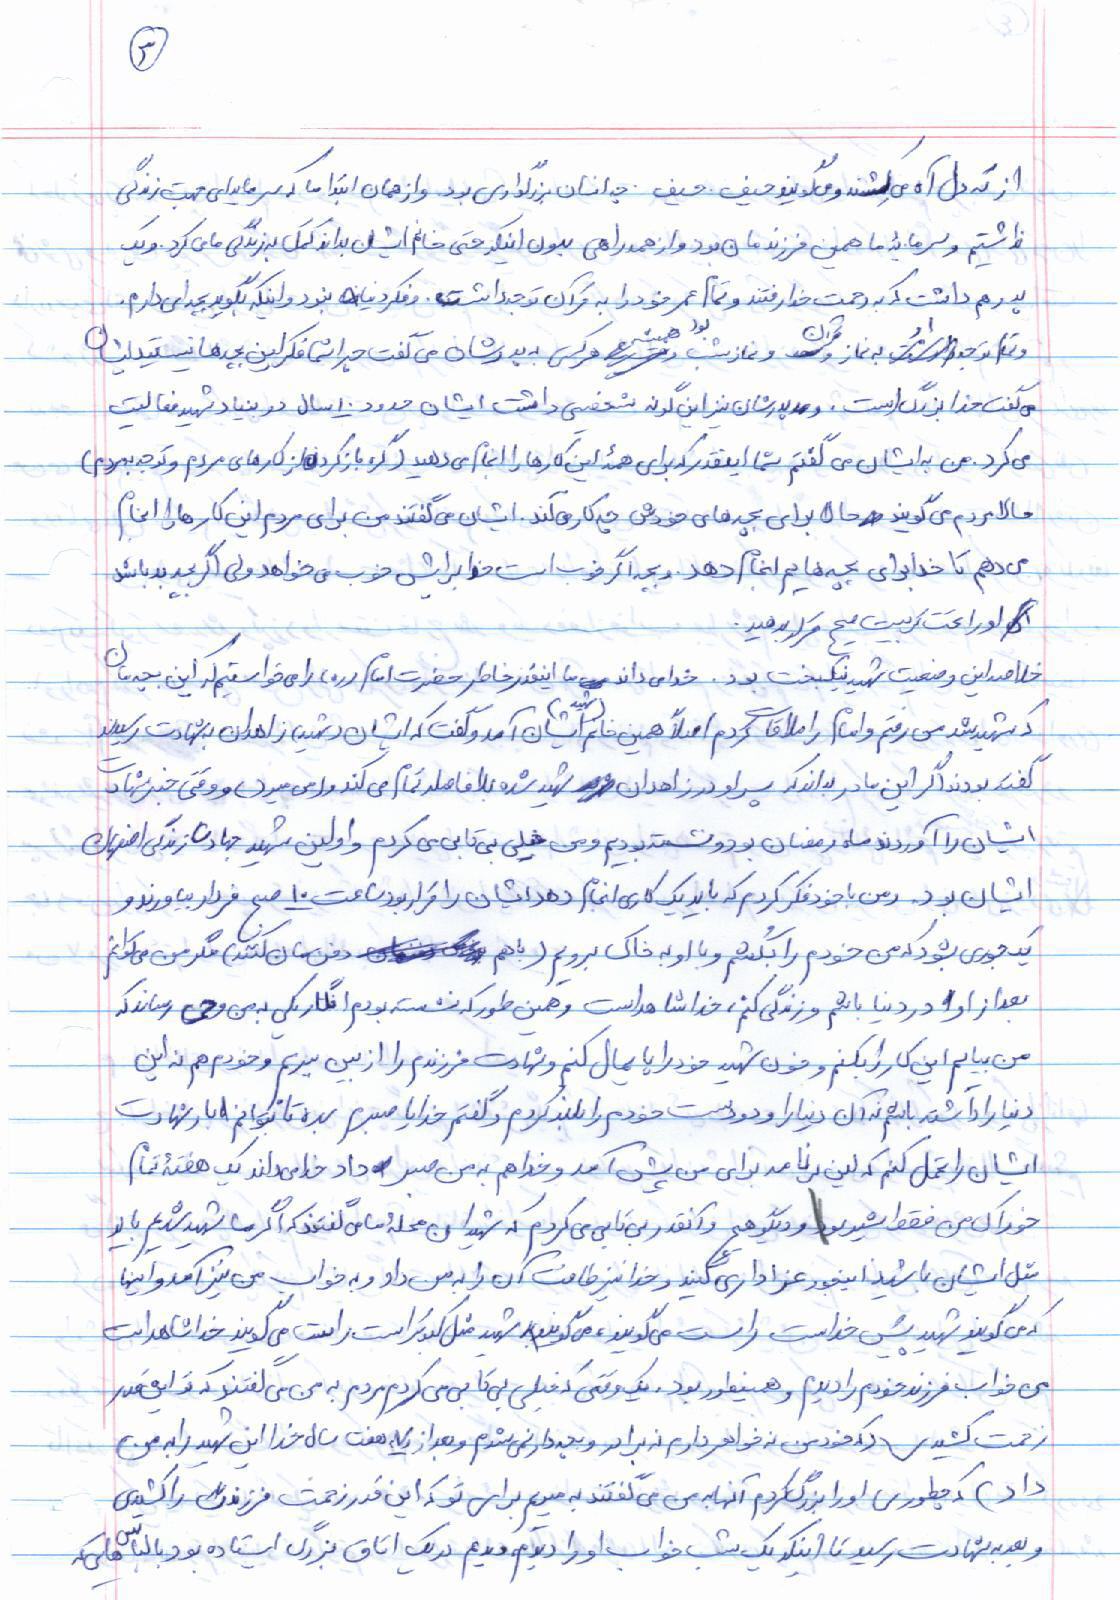 ۳
از ته دل آه می کشند و می گویند حیف. حیف. چه انسان بزرگواری بود. و از همان ابتدا ما که سرمایه ای جهت زندگی
نداشتیم و سرمایه ما همین فرزندمان بود و از همه راهی بدون اینکه حتی خانم ایشان بداند کمک به زندگی ما می کرد. و یک
پدر هم داشت که به رحمت خدا رفتند و تمام عمر خود را به قرآن توجه داشت. و فکر دنیا نبود و اینکه بگوید بچه ای دارم.
و تمام توجه اش به نماز و قرآن و نماز شب بود همیشه هر کس به پدرشان می گفت چرا شما فکر این بچه ها نیستید ایشان
می گفت خدا بزرگ است. و پدرشان نیز این گونه شخصیتی داشت ایشان حدود ۱۰ سال در بنیاد شهید فعالیت
می کرد. من به ایشان می گفتم شما اینقدر که برای همه این کارها را انجام می دهید (گره باز کردن از کارهای مردم و توجه به مردم)
حالا مردم می گویند حالا برای بچه های خودش چه کار می کند. ایشان می گفتند من برای مردم این کارها را انجام
می دهم تا خدا برای بچه هایم انجام دهد. و بچه اگر خوب است خدا برایش خوب می خواهد ولی اگر بچه بد باشد
او را تحت تربیت صحیح قرار بدهید.
خلاصه این وضعیت شهید نیکبخت بود. خدا می داند ما اینقدر خاطر حضرت امام (ره) را می خواستیم که این بچه مان
که شهید شد من رفتم و امام را ملاقات کردم اصلاً همین خانم (شهید) ایشان آمد و گفت که ایشان در شهر زاهدان به شهادت رسیدند
گفته بودند اگر این مادر بداند که پسر او در زاهدان شهید شده بلافاصله تمام می کند و می میرد و وقتی خبر شهادت
ایشان را آوردند ماه رمضان بود و نشسته بودیم و من خیلی بی تابی می کردم و اولین شهید جهاد سازندگی اصفهان
ایشان بود. و من با خود فکر کردم که باید یک کاری انجام دهد ایشان را قرار بود ساعت ۱۰ صبح فردا بیاورند و
یک جوری بشود که من خودم را بکُشم و با او به خاک برویم (با هم دفن مان کنند) مگر من می توانم
بعد از او در دنیا باشم و زندگی کنم، خدا شاهد است و همین طور که نشسته بودم انگار یکی به من وحی رساند که
من بیایم این کار را بکنم و خون شهید خود را پایمال کنم و شهادت فرزندم را از بین ببرم و خودم هم نه این
دنیا را داشته باشم نه آن دنیا را و دو دست خودم را بلند کردم و گفتم خدایا صبرم بده تا بتوانم بار شهادت
ایشان را تحمل کنم که این برنامه برای من پیش آمد و خدا هم به من صبر داد خدا می داند یک هفته تمام
خوراک من فقط شیر بود و دیگر هیچ و آنقدر بی تابی می کردم که شهیدان محله ما می گفتند که اگر ما شهید شدیم باید
مثل ایشان باشید اینجور عزاداری کنید و خدا نیز طاقت آن را به من داد و به خواب من نیز آمد و اینها
که می گویند شهید پیش خداست راست می گویند، می گویند شهید مثل کبوتر است راست می گویند خدا شاهد است
من خواب فرزند خودم را دیدم و همینطور بود. یک وقتی که خیلی بی تابی می کردم مردم به من می گفتند که تو این قدر
زحمت کشیدی (که خود من نه خواهر دارم نه برادر و بچه دار نمی شدم و بعد از هفت سال خدا این شهید را به من
داد) که چطوری او را بزرگ کردم آنها به من می گفتند بمیریم برای تو که این قدر زحمت فرزندت را کشیدی
و بعد به شهادت رسید تا اینکه یک شب خواب او را دیدم دیدم در یک اتاق بزرگ ایستاده بود با لباس هایی که